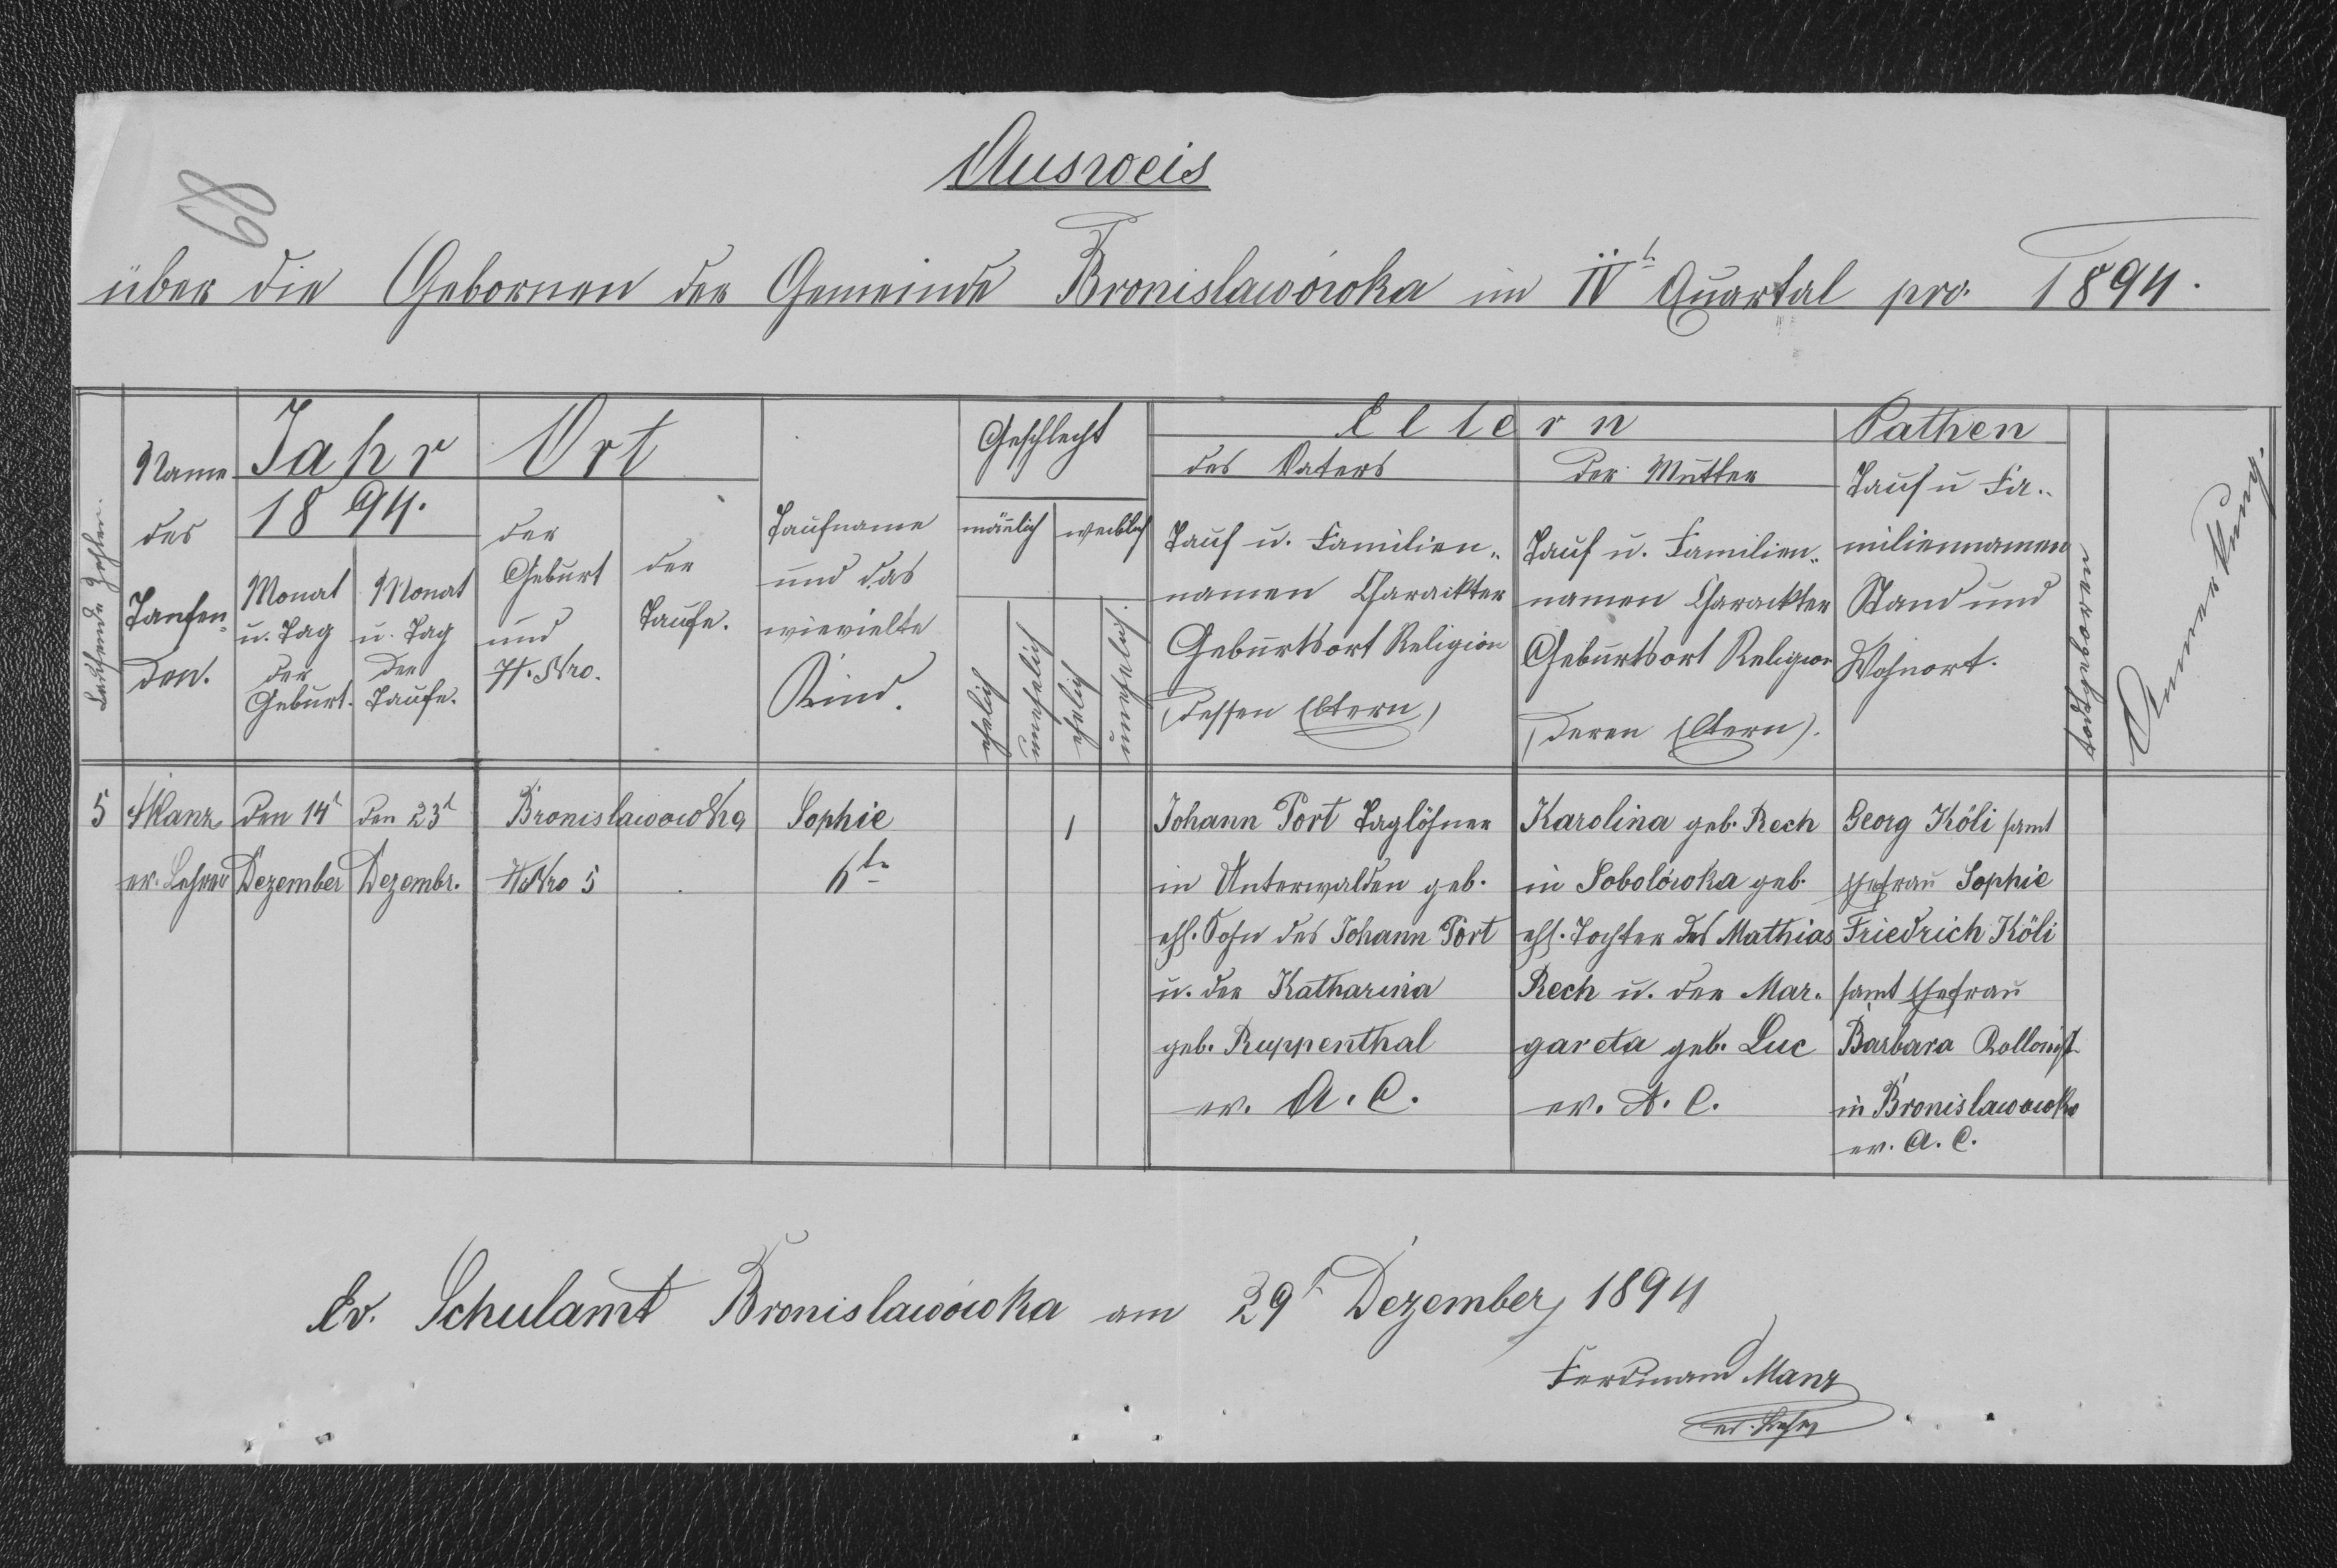 Ausweis
über die Gebornen der Gemeinde Bronislawówka im IVt. Quartal pro 1894.
Laufende Zahlen.
Name
des
Taufen-
den.
Jahr
1894.
Monat
u. Tag
der
Geburt.
Monat
u. Tag
der
Taufe.
Ort
der
Geburt
und
H. Nro.
der
Taufe.
Taufname
und das
wievielte
Kind.
Geschlecht
männlich
weiblich
ehelich
unehelich
ehelich
unehelich
Eltern
des Vaters
Tauf u. Familien-
namen Charackter
Geburtsort Religion
(dessen Eltern)
der Mutter
Tauf u. Familien-
namen Charackter
Geburtsort Religion
(deren Eltern).
Pathen
Tauf u Fa-
miliennamen
Stand und
Wohnort.
todtgeboren
Anmerkung.
5
Manz
ev. Lehrer
den 14t
Dezember
den 23t
Dezembr.
Bronislawowka
H Nro 5
Sophie
6te
1
Johann Port Taglöhner
in Unterwalden geb.
ehl. Sohn des Johann Port
u. der Katharina
geb. Ruppenthal
ev. A. C.
Karolina geb. Rech
in Sobolówka geb.
ehl. Tochter des Mathias
Rech u. der Mar-
gareta geb. Luc
ev. A. C.
Georg Köli samt
Ehefrau Sophie
Friedrich Köli
samt Ehefrau
Barbara Kollonist
in Bronislawowka
ev. A. C.
Ev. Schulamt Bronislawówka am 29t Dezember 1894
Ferdinand Manz
ev. Lehrer